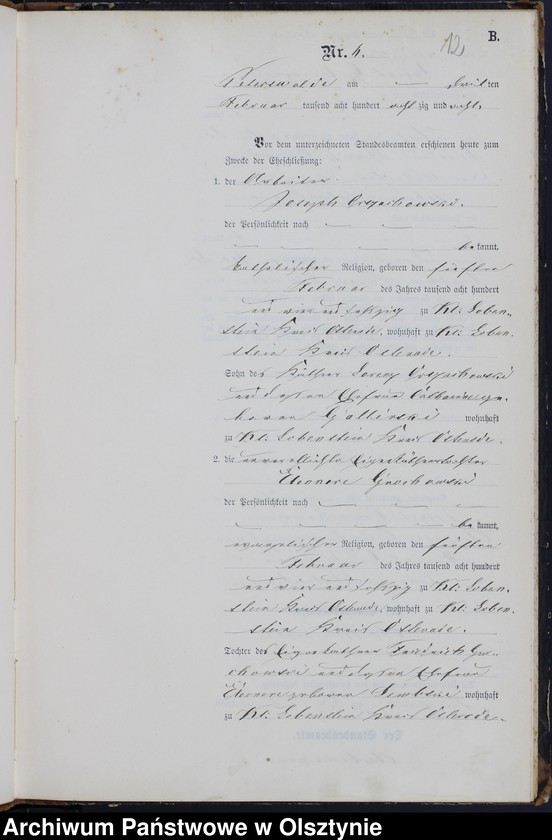 B.
12
Nr. 4.
Peterswalde am — dritten
Februar tausend acht hundert achtzig und acht.
Vor dem unterzeichneten Standesbeamten erschienen heute zum
Zwecke der Eheschließung:
1. der Arbeiter
Joseph
der Persönlichkeit nach — — —
— — — — bekannt,
katholischer Religion, geboren den fünften
Februar des Jahres tausend acht hundert
und vier und sechzig zu Kl: Loben-
stein Kreis Osterode, wohnhaft zu Kl: Loben-
stein Kreis Osterode.
Sohn des
und dessen Ehefrau Catharina ge-
borene wohnhaft
zu Kl: Lobenstein Kreis Osterode.
2. die unverehelichte Eigenkäthnertochter
Eleonore Grochowski
der Persönlichkeit nach — — —
— — — — bekannt,
evangelischer Religion, geboren den fünften
Februar des Jahres tausend acht hundert
und vier und sechzig zu Kl: Loben-
stein Kreis Osterode, wohnhaft zu Kl: Loben-
stein Kreis Osterode.
Tochter des Eigenkäthner Friedrich Gro-
chowski und dessen Ehefrau
Eleonore geborene wohnhaft
zu Kl: Lobenstein Kreis Osterode.
Der Standesbeamte.
Archiwum Państwowe w Olsztynie